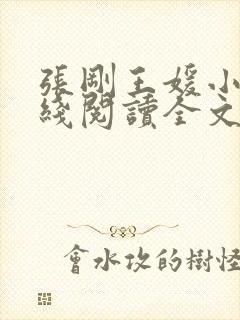 張剛王媛小
綫閱讀全文
會水攻的樹怪